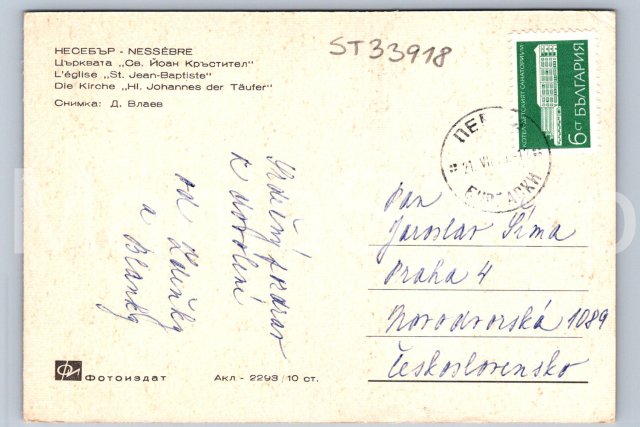 НЕСЕБЪР - NESSÈBRE
Църквата „Св. Йоан Кръстител"
L'église „St. Jean-Baptiste"
Die Kirche „Hl. Johannes der Täufer"
Снимка: Д. Влаев
ST33918
6 СТ БЪЛГАРИЯ
21. VII
БУРГАСКИ
Srdečný pozdrav
z dovolení
od Zdeňky
a Blanky
Pan
Jaroslav Šíma
Praha 4
Novodvorská 1089
Československo
Фотоиздат
Акл - 2293/10 ст.